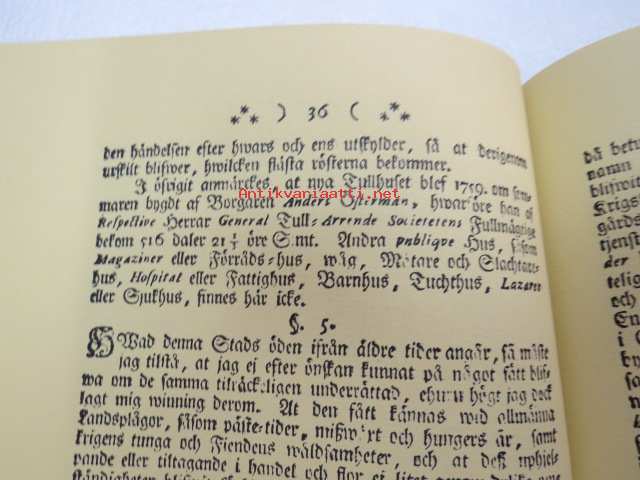 ) 36 (
den händelsen efter hwars och ens utskylder, så at derigenom
urskilt blifwer, hwilcken flästa rösterna bekommer.
I öfrigit anmärckes, at nya Tullhuset blef 1759. om som-
maren bygdt af Borgaren Anders Åkerman, hwarföre han af
Respective Herrar General Tull-Arrende Societetens Fullmägtige
bekom 516 daler 21 1/3 öre S:mt. Andra publique Hus, såsom
Magaziner eller Förråds-hus, wåg, Mätare och Slachtare-
hus, Hospital eller Fattighus, Barnhus, Tuchthus, Lazaret
eller Sjukhus, finnes här icke.
§. 5.
HWad denna Stads öden ifrån äldre tider angår, så måste
jag tilstå, at jag ej efter önskan kunnat på något sätt blif-
wa om de samma tilräckeligen underrättad, ehuru högt jag dock
lagt mig winning derom. At den fått kännas wid allmänna
Landsplågor, såsom päste-tider, mißwäxt och hungers år, samt
krigens tunga och Fiendens wåldsamheter, och at deß uphjel-
pande eller tiltagande i handel och flor ej litet genom
då betu
namn
blifwit
Krigs
tjenst
der
telig
och
En
i
by
Antikvariaatti.net